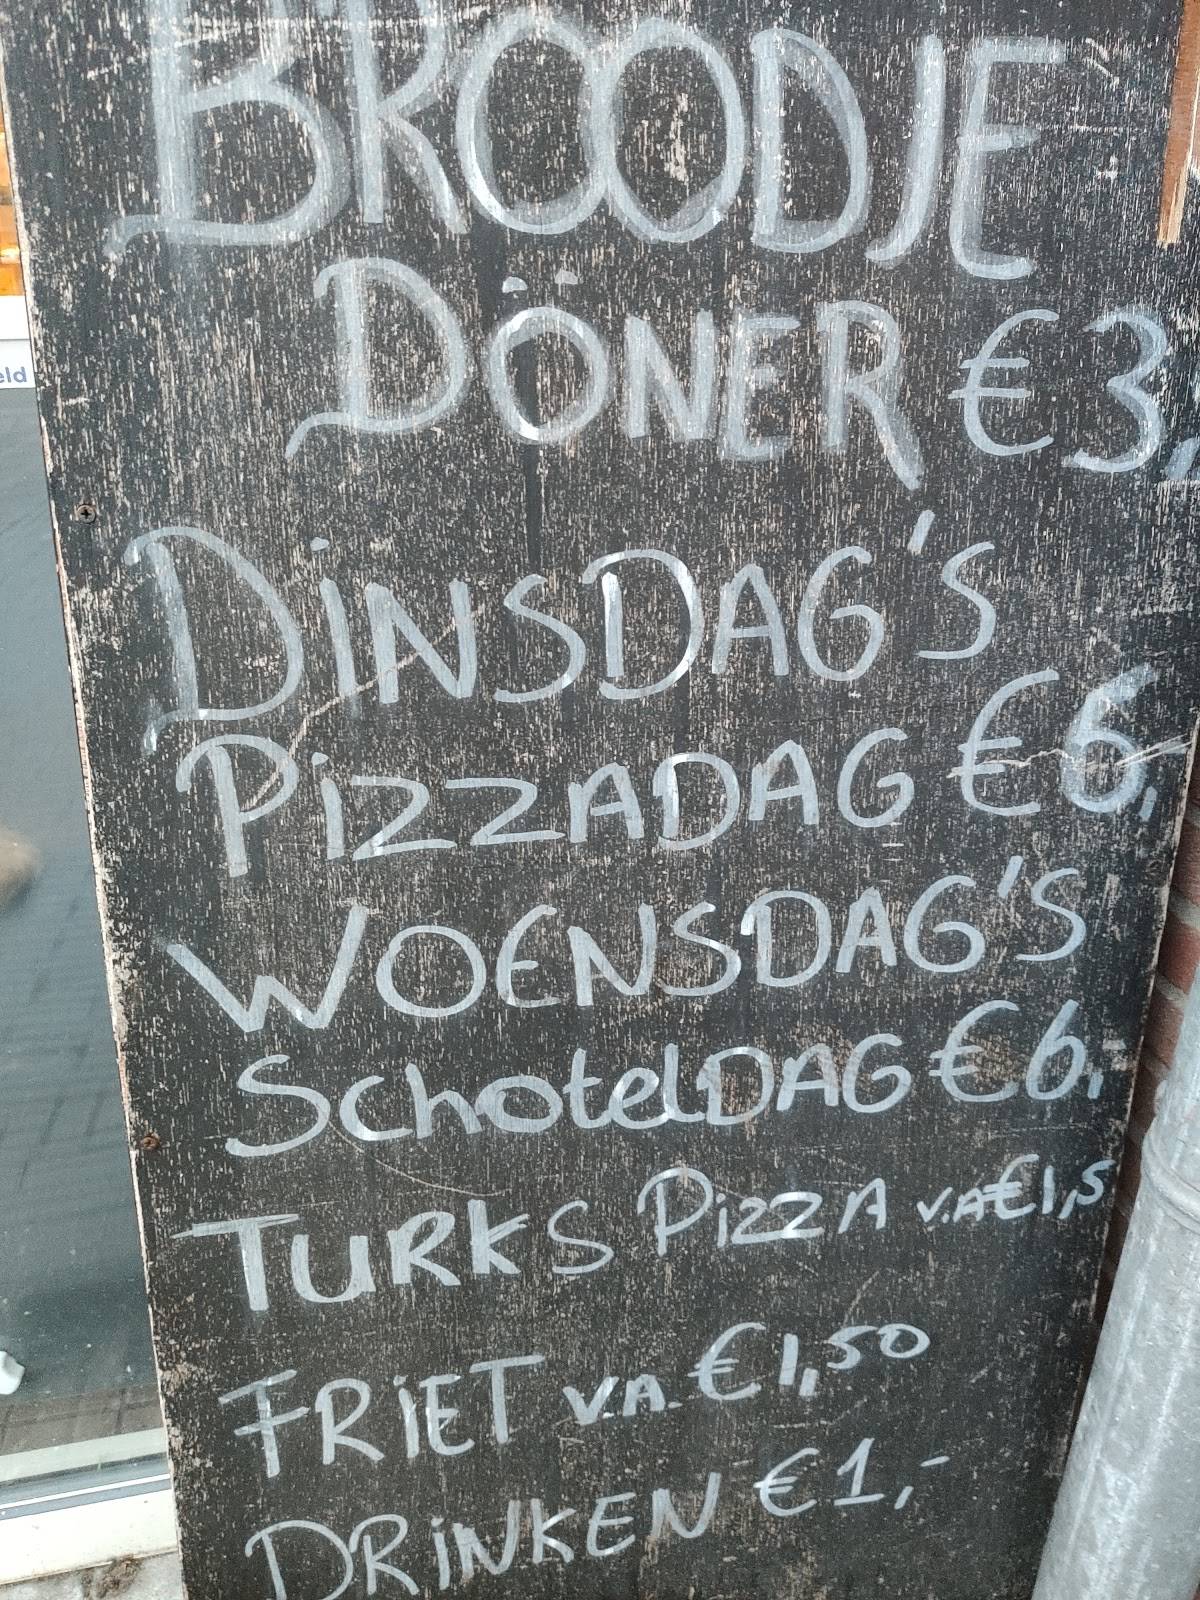 BROODJE
DÖNER €3,
DINSDAG'S
PIZZADAG €6,
WOENSDAG'S
SchotelDAG €6,-
TURKS PIZZA V.A €1,5
FRIET V.A. €1,50
DRINKEN €1,-
eld